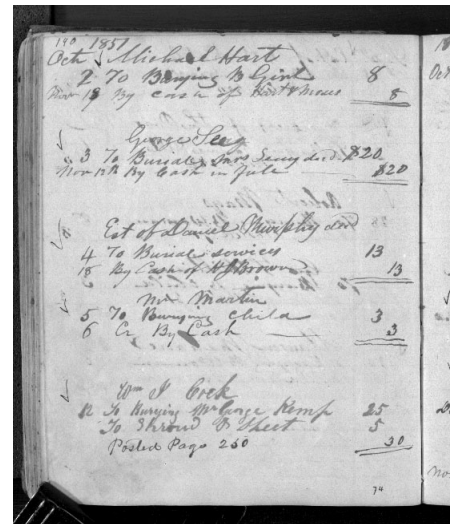 190 1857
Oct Michael Hart
2 To Burying B Girl 8
Nov 13 By Cash of Hart & Moses 8
George Seeg
3 To Burial dec'd $20
Nov 12th By Cash in full $20
Est of Daniel Murphy dec
4 To Burial services 13
18 By Cash of H Brown 13
Mr Martin
5 To Burying Child 3
6 Cr By Cash 3
Wm J Cock
12 To Burying Mr George Kemp 25
To Shroud & Sheet 5
Posted Page 250 30
74